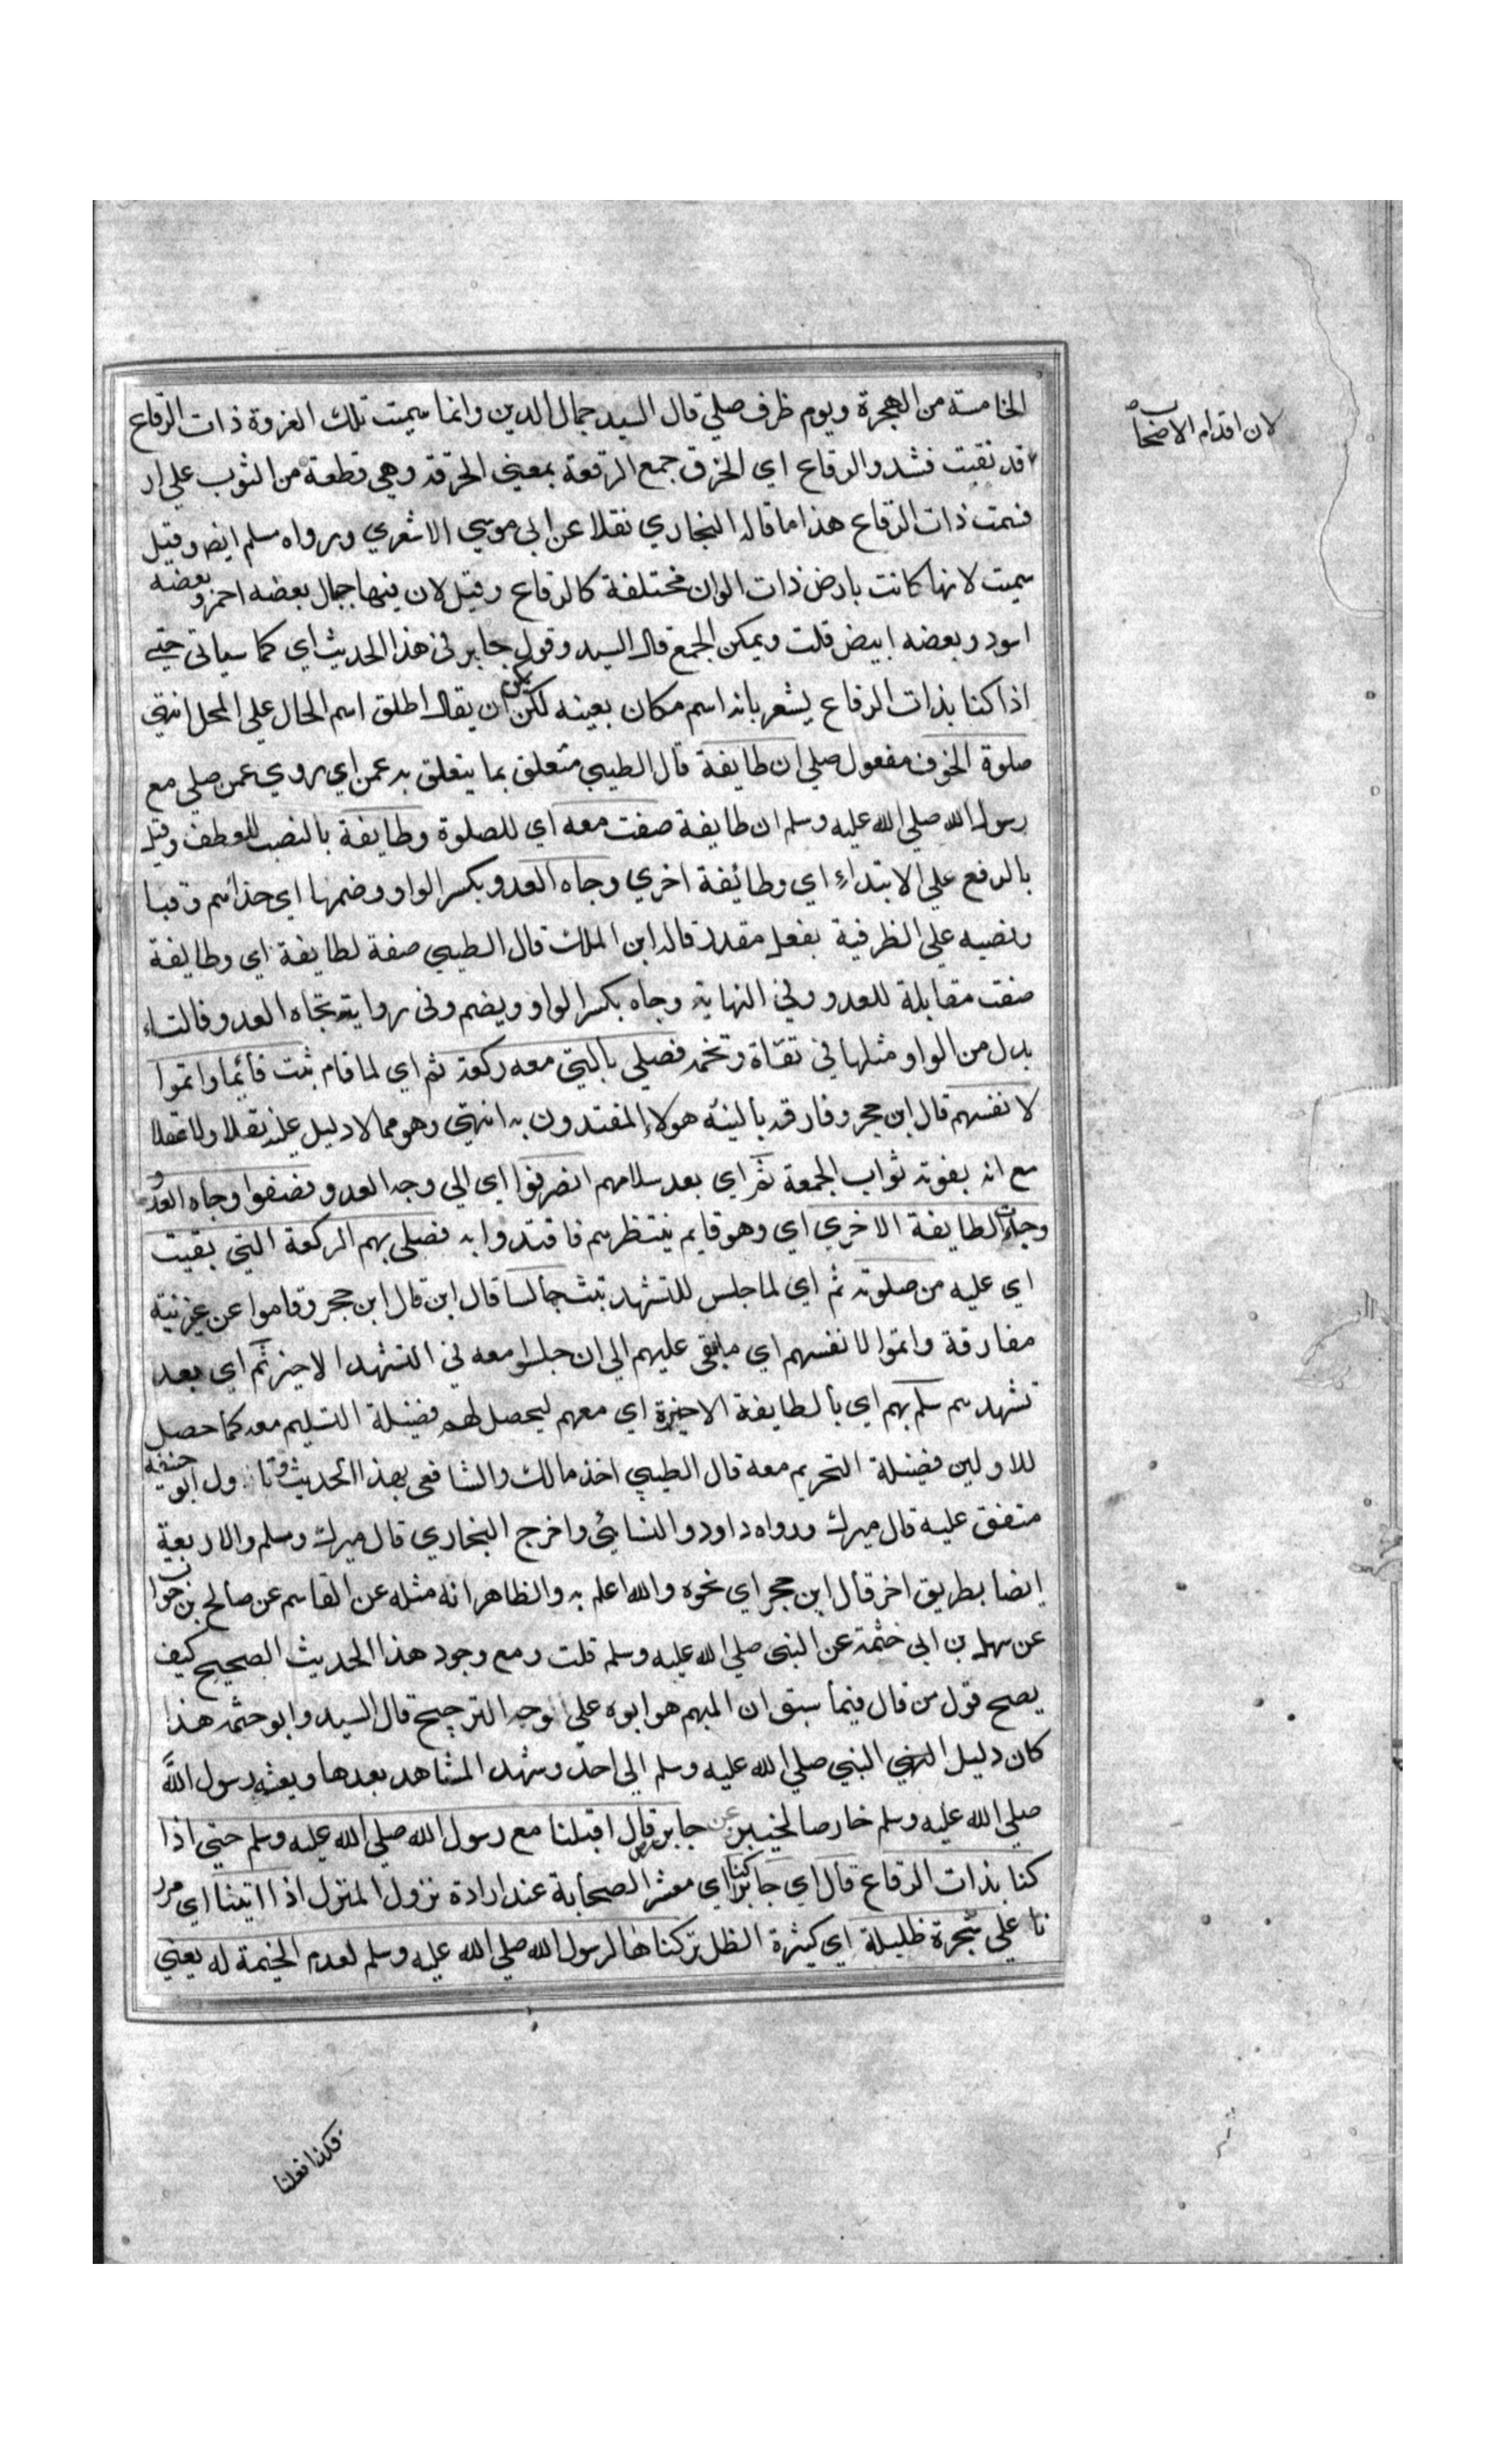 الخامسة من الهجرة ويوم ظرف صلي قال السيد جمال الدين وانما سميت تلك الغزوة ذات الرقاع
لان اقدام الاصحاب
قد نقبت فشدوا الرقاع اي الخرق جمع الرقعة بمعني الخرقة وهي قطعة من الثوب علي ار
فسمت ذات الرقاع هذا ما قاله البخاري نقلا عن ابي موسي الاشعري ورواه مسلم ايض وقيل
سميت لانها كانت بارض ذات الوان مختلفة كالرقاع وقيل لان فيها جبال بعضه احمر وبعضه
اسود وبعضه ابيض قلت ويمكن الجمع قال السيد وقول جابر في هذا الحديث اي كما سياتي حتي
اذا كنا بذات الرقاع يشعر بانه اسم مكان بعينه لكن يمكن ان يقال اطلق اسم الحال علي المحل انتهي
صلوة الخوف مفعول صلي ان طايفة قال الطيبي متعلق بما يتعلق به عمن اي روي عمن صلي مع
رسول الله صلي الله عليه وسلم ان طايفة صفت معه اي للصلوة وطايفة بالنصب للعطف وقيل
بالرفع علي الابتداء اي وطائفة اخري وجاه العدو بكسر الواو وضمها اي حذائهم وقبا
ونصبه علي الظرفية بفعل مقدر قاله ابن الملك قال الطيبي صفة لطايفة اي وطايفة
صفت مقابلة للعدو وفي النهاية وجاه بكسر الواو ويضم وفي رواية تجاه العدو فالتاء
بدل من الواو مثلها في تقاة وتخمة فصلي بالتي معه ركعة ثم اي لما قام ثبت قائما واتموا
لا نفسهم قال ابن حجر وفارقه بالنية هولاء المقتدون به انتهي وهو مما لا دليل عليه نقلا ولا عقلا
مع انه يفوته ثواب الجمعة ثم اي بعد سلامهم انصرفوا اي الي وجه العدو فصفوا وجاه العدو
وجاءت الطايفة الاخري اي وهو قايم ينتظرهم فاقتدوا به فصلي بهم الركعة التي بقيت
اي عليه من صلوته ثم اي لما جلس للتشهد ثبت جالسا قال ابن قال ابن حجر وقاموا عن غير نية
مفارقة واتموا لا نفسهم اي ما بقي عليهم الي ان جلسوا معه في التشهد الاخير ثم اي بعد
تشهدهم سلم بهم اي بالطايفة الاخيرة اي معهم ليحصل لهم فضيلة التسليم معه كما حصل
للاولين فضيلة التحريم معه قال الطيبي اخذ مالك والشافعي بهذا الحديث وتاول ابو حنيفه
متفق عليه قال ميرك ورواه داود والنسائي واخرج البخاري قال ميرك وسلم والاربعة
ايضا بطريق اخر قال ابن حجر اي نحوه والله اعلم به والظاهر انه مثله عن القاسم عن صالح بن خوات
عن سهل بن ابي حثمة عن النبي صلي الله عليه وسلم قلت ومع وجود هذا الحديث الصحيح كيف
يصح قول من قال فيما سبق ان المبهم هو ابوه علي وجه الترجيح قال السيد وابو حثمه هذا
كان دليل النبي صلي الله عليه وسلم الي احد وشهد المشاهد بعدها وبعثه رسول الله
صلي الله عليه وسلم خارصا لخيبر عن جابر قال اقبلنا مع رسول الله صلي الله عليه وسلم حتي اذا
كنا بذات الرقاع قال اي جابر كنا اي معشر الصحابة عند ارادة نزول المنزل اذا اتينا اي مرر
نا علي شجرة ظليلة اي كثيرة الظل تركناها لرسول الله صلي الله عليه وسلم لعدم الخيمة له يعني
فكذا فعلنا